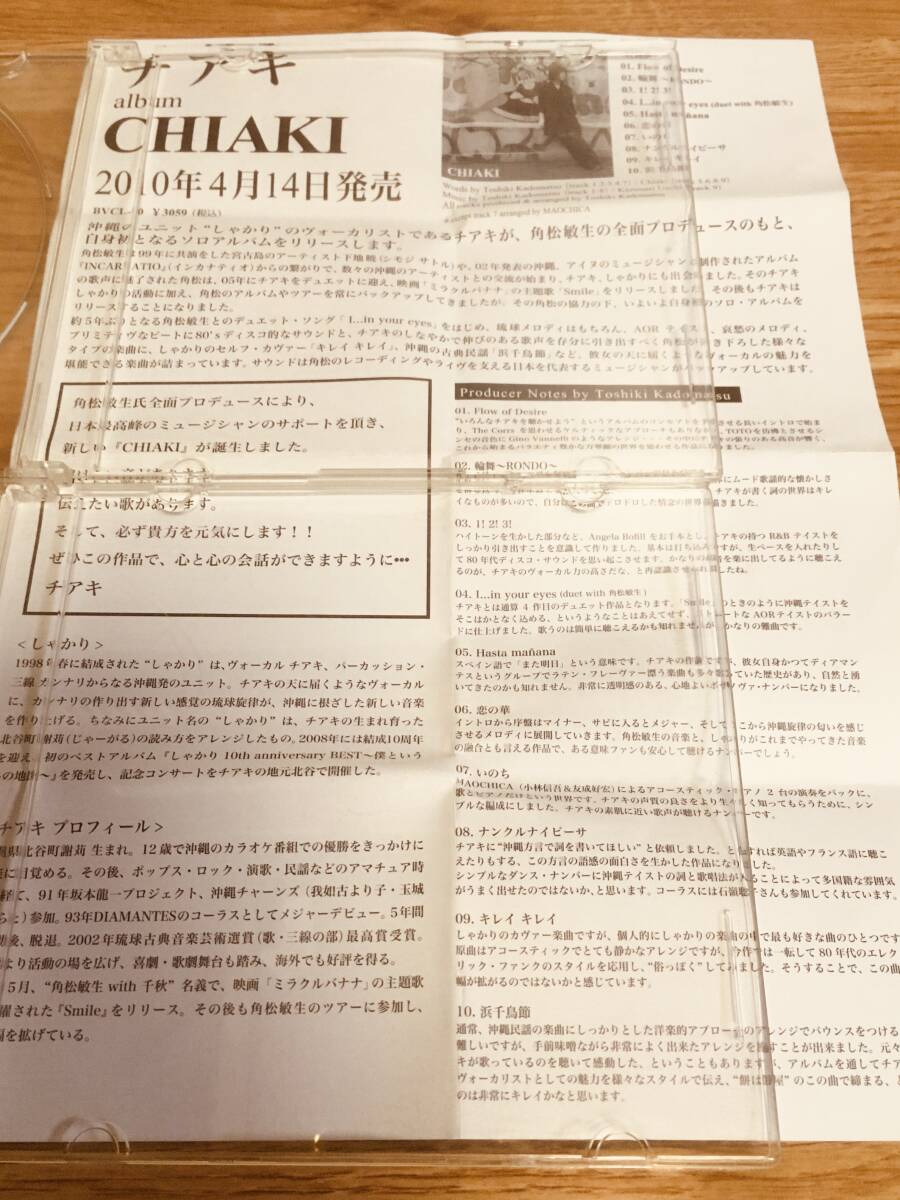 チアキ
album
CHIAKI
2010年4月14日発売
¥3059 (税込)
CHIAKI
01. Flow of Desire
02. 輪舞 ～RONDO～
03. 1! 2! 3!
04. I...in your eyes (duet with 角松敏生)
05. Hasta mañana
06. 恋の華
07. いのち
08. ナンクルナイビーサ
09. キレイ キレイ
10. 浜千鳥節
沖縄のユニット“しゃかり”のヴォーカリストであるチアキが、角松敏生の全面プロデュースのもと、
自身初となるソロアルバムをリリースします。
角松敏生は99年に共演をした宮古島のアーティスト下地暁(シモジ サトル)や、02年発表の沖縄、アイヌのミュージシャンと制作されたアルバム
『INCARNATIO』(インカナティオ)からの繋がりで、数々の沖縄のアーティストとの交流が始まり、チアキ、しゃかりにも出会いました。そのチアキ
の歌声に魅了された角松は、05年にチアキをデュエットに迎え、映画「ミラクルバナナ」の主題歌「Smile」をリリースしました。その後もチアキは
しゃかりの活動に加え、角松のアルバムやツアーを常にバックアップしてきましたが、その角松の協力の下、いよいよ自身初のソロ・アルバムを
リリースすることになりました。
約5年ぶりとなる角松敏生とのデュエット・ソング「I...in your eyes」をはじめ、琉球メロディはもちろん、AOR テイスト、哀愁のメロディ、
プリミティヴなビートに80'sディスコ的なサウンドと、チアキのしなやかで伸びのある歌声を存分に引き出すべく角松が書き下ろした様々な
タイプの楽曲に、しゃかりのセルフ・カヴァー「キレイ キレイ」、沖縄の古典民謡「浜千鳥節」など、彼女の天に届くようなヴォーカルの魅力を
堪能できる楽曲が詰まっています。サウンドは角松のレコーディングやライヴを支える日本を代表するミュージシャンがバックアップしています。
角松敏生氏全面プロデュースにより、
日本最高峰のミュージシャンのサポートを頂き、
新しい『CHIAKI』が誕生しました。
伝えたい歌があります。
そして、必ず貴方を元気にします！！
ぜひこの作品で、心と心の会話ができますように…
チアキ
＜しゃかり＞
1998年春に結成された“しゃかり”は、ヴォーカル チアキ、パーカッション・
三線 カンナリからなる沖縄発のユニット。チアキの天に届くようなヴォーカル
に、カンナリの作り出す新しい感覚の琉球旋律が、沖縄に根ざした新しい音楽
を作り上げる。ちなみにユニット名の“しゃかり”は、チアキの生まれ育った
北谷町謝苅(じゃーがる)の読み方をアレンジしたもの。2008年には結成10周年
を迎え、初のベストアルバム『しゃかり 10th anniversary BEST～僕という
の地図～』を発売し、記念コンサートをチアキの地元北谷で開催した。
チアキ プロフィール＞
県北谷町謝苅 生まれ。12歳で沖縄のカラオケ番組での優勝をきっかけに
に目覚める。その後、ポップス・ロック・演歌・民謡などのアマチュア時
経て、91年坂本龍一プロジェクト、沖縄チャーンズ(我如古より子・玉城
)参加。93年DIAMANTESのコーラスとしてメジャーデビュー。5年間
後、脱退。2002年琉球古典音楽芸術選賞(歌・三線の部)最高賞受賞。
より活動の場を広げ、喜劇・歌劇舞台も踏み、海外でも好評を得る。
5月、“角松敏生 with 千秋”名義で、映画「ミラクルバナナ」の主題歌
された『Smile』をリリース。その後も角松敏生のツアーに参加し、
を拡げている。
Producer Notes by Toshiki Kadomatsu
01. Flow of Desire
02. 輪舞～RONDO～
03. 1! 2! 3!
ハイトーンを生かした部分など、Angela Bofill をお手本とし、チアキの持つ R&B テイストを
しっかり引き出すことを意識して作りました。基本は打ち込みですが、生ベースを入れたりし
て80年代ディスコ・サウンドを思い起こさせます。かなりの高音を楽に出してるように聴こえ
るのが、チアキのヴォーカル力の高さだな、と再認識させられましたね。
04. I...in your eyes (duet with 角松敏生)
チアキとは通算4作目のデュエット作品となります。「Smile」のときのように沖縄テイストを
そこはかとなく込める、というようなことはあえてせず、ストレートな AORテイストのバラー
ドに仕上げました。歌うのは簡単に聴こえるかも知れませんが、かなりの難曲です。
05. Hasta mañana
スペイン語で「また明日」という意味です。チアキの作詞ですが、彼女自身かつてディアマン
テスというグループでラテン・フレーヴァー漂う楽曲も多々歌っていた歴史があり、自然と湧
いてきたのかも知れません。非常に透明感のある、心地よいボサノヴァ・ナンバーになりました。
06. 恋の華
イントロから序盤はマイナー、サビに入るとメジャー、そしてそこから沖縄旋律の匂いを感じ
させるメロディに展開していきます。角松敏生の音楽と、しゃかりがこれまでやってきた音楽
の融合とも言える作品で、ある意味ファンも安心して聴けるナンバーでしょう。
07. いのち
MAOCHICA（小林信吾&友成好宏）によるアコースティック・ピアノ 2台の演奏をバックに、
歌とピアノだけという世界です。チアキの声質の良さをより生々しく知ってもらうために、シン
プルな編成にしました。チアキの素肌に近い歌声が聴けるナンバーです。
08. ナンクルナイビーサ
チアキに“沖縄方言で詞を書いてほしい”と依頼しました。ともすれば英語やフランス語に聴こ
えたりもする、この方言の語感の面白さを生かした作品になりました。
シンプルなダンス・ナンバーに沖縄テイストの詞と歌唱法が入ることによって多国籍な雰囲気
がうまく出せたのではないか、と思います。コーラスには石嶺聡子さんも参加してくれています。
09. キレイ キレイ
しゃかりのカヴァー楽曲ですが、個人的にしゃかりの楽曲の中で最も好きな曲のひとつです
原曲はアコースティックでとても静かなアレンジですが、今作では一転して80年代のエレク
リック・ファンクのスタイルを応用し、“俗っぽく”してみました。そうすることで、この曲
幅が拡がるのではないかと感じています。
10. 浜千鳥節
通常、沖縄民謡の楽曲にしっかりとした洋楽的アプローチのアレンジでバウンスをつける
難しいですが、手前味噌ながら非常によく出来たアレンジを施すことが出来ました。元々
キが歌っているのを聴いて感動した、ということもありますが、アルバムを通してチア
ヴォーカリストとしての魅力を様々なスタイルで伝え、“餅は餅屋”のこの曲で締まる、
のは非常にキレイかなと思います。